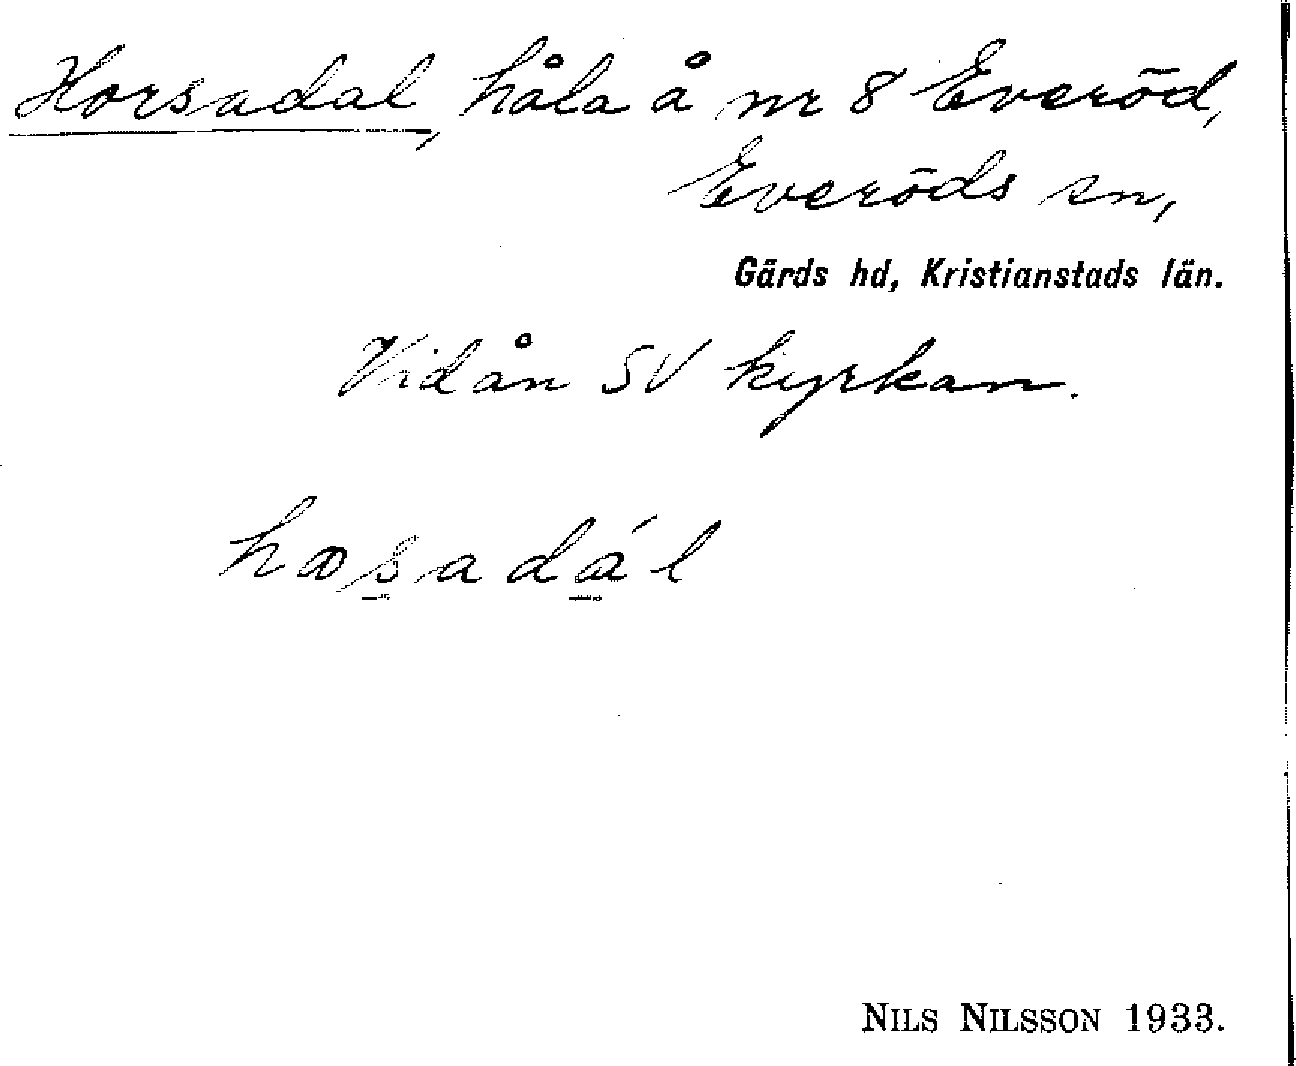 Horsadal, håla å nr 8 Everöd,
Everöds sn,
Gärds hd, Kristianstads län.
Vid ån SV kyrkan.
hosadál
NILS NILSSON 1933.